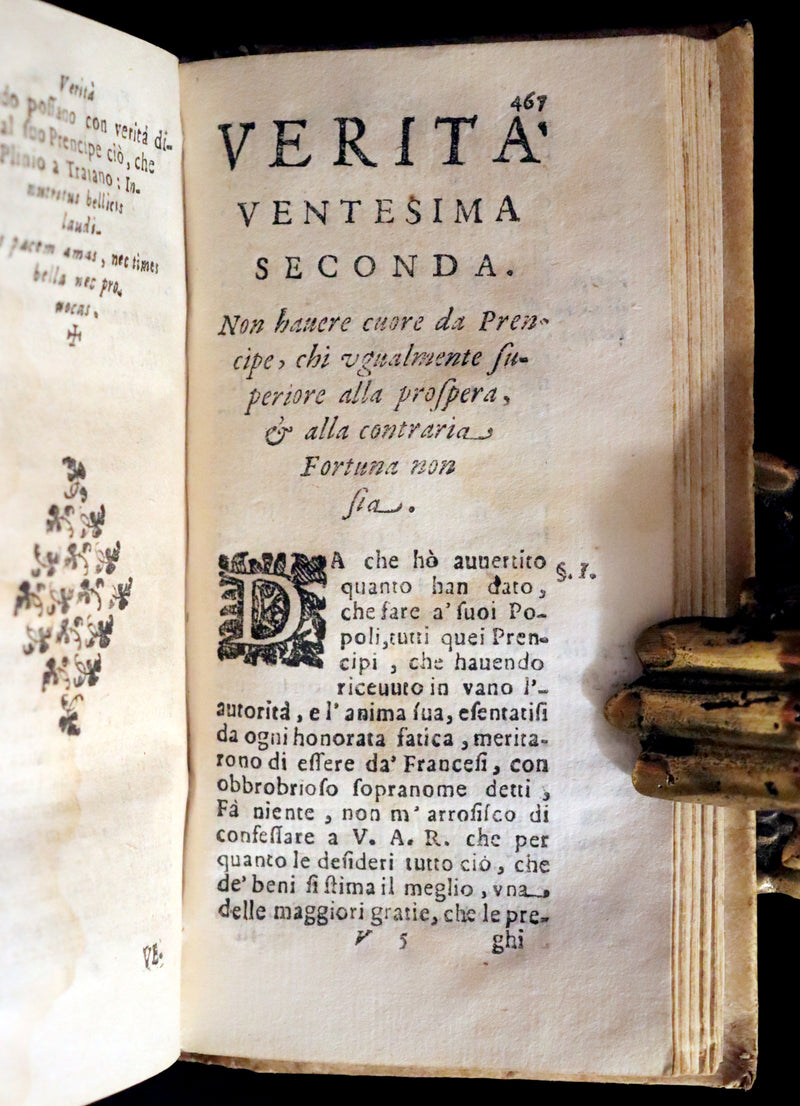 Verità
do possano con verità di-
al suo Prencipe ciò, che
Plinio a Traiano: In-
bellicis
laudi-
pacem amas, nec times
bella nec pro-
uocas.
VE-
467
VERITA'
VENTESIMA
SECONDA.
Non hauere cuore da Pren-
cipe, chi vgualmente ſu-
periore alla proſpera,
& alla contraria
Fortuna non
ſia.
DA che hò auuertito §. 1.
quanto han dato,
che fare a' ſuoi Po-
poli, tutti quei Pren-
cipi, che hauendo
riceuuto in vano l'-
autorità, e l'anima ſua, eſentatiſi
da ogni honorata fatica, merita-
rono di eſſere da' Franceſi, con
obbrobrioſo ſopranome detti,
Fà niente, non m'arroſiſco di
confeſſare a V. A. R. che per
quanto le deſideri tutto ciò, che
de' beni ſi ſtima il meglio, vna
delle maggiori gratie, che le pre-
V 5 ghi